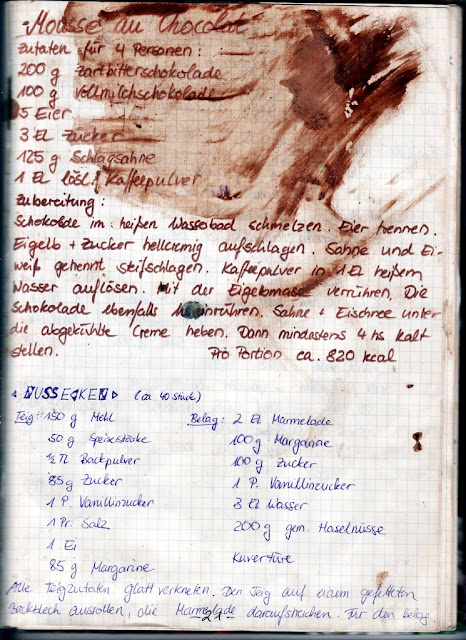 Mousse au Chocolat
Zutaten für 4 Personen:
200 g Zartbitterschokolade
100 g Vollmilchschokolade
5 Eier
3 El Zucker
125 g Schlagsahne
1 El lösl. Kaffeepulver
Zubereitung:
Schokolade im heißen Wasserbad schmelzen. Eier trennen.
Eigelb + Zucker hellcremig aufschlagen. Sahne und Ei-
weiß getrennt steifschlagen. Kaffeepulver in 1 El heißem
Wasser auflösen. Mit der Eigelbmasse verrühren. Die
Schokolade ebenfalls einrühren. Sahne + Eischnee unter
die abgekühlte Creme heben. Dann mindestens 4 hs kalt
stellen. Pro Portion ca. 820 kcal
NUSSECKEN (ca 40 Stück)
Teig: 150 g Mehl Belag: 2 El Marmelade
50 g Speisestärke 100 g Margarine
½ Tl Backpulver 100 g Zucker
85 g Zucker 1 P. Vanillinzucker
1 P. Vanillinzucker 3 El Wasser
1 Pr. Salz 200 g gem. Haselnüsse
1 Ei
85 g Margarine Kuvertüre
Alle Teigzutaten glatt verkneten. Den Teig auf einem gefetteten
Backblech ausrollen, die Marmelade daraufstreichen. Für den Belag
-21-